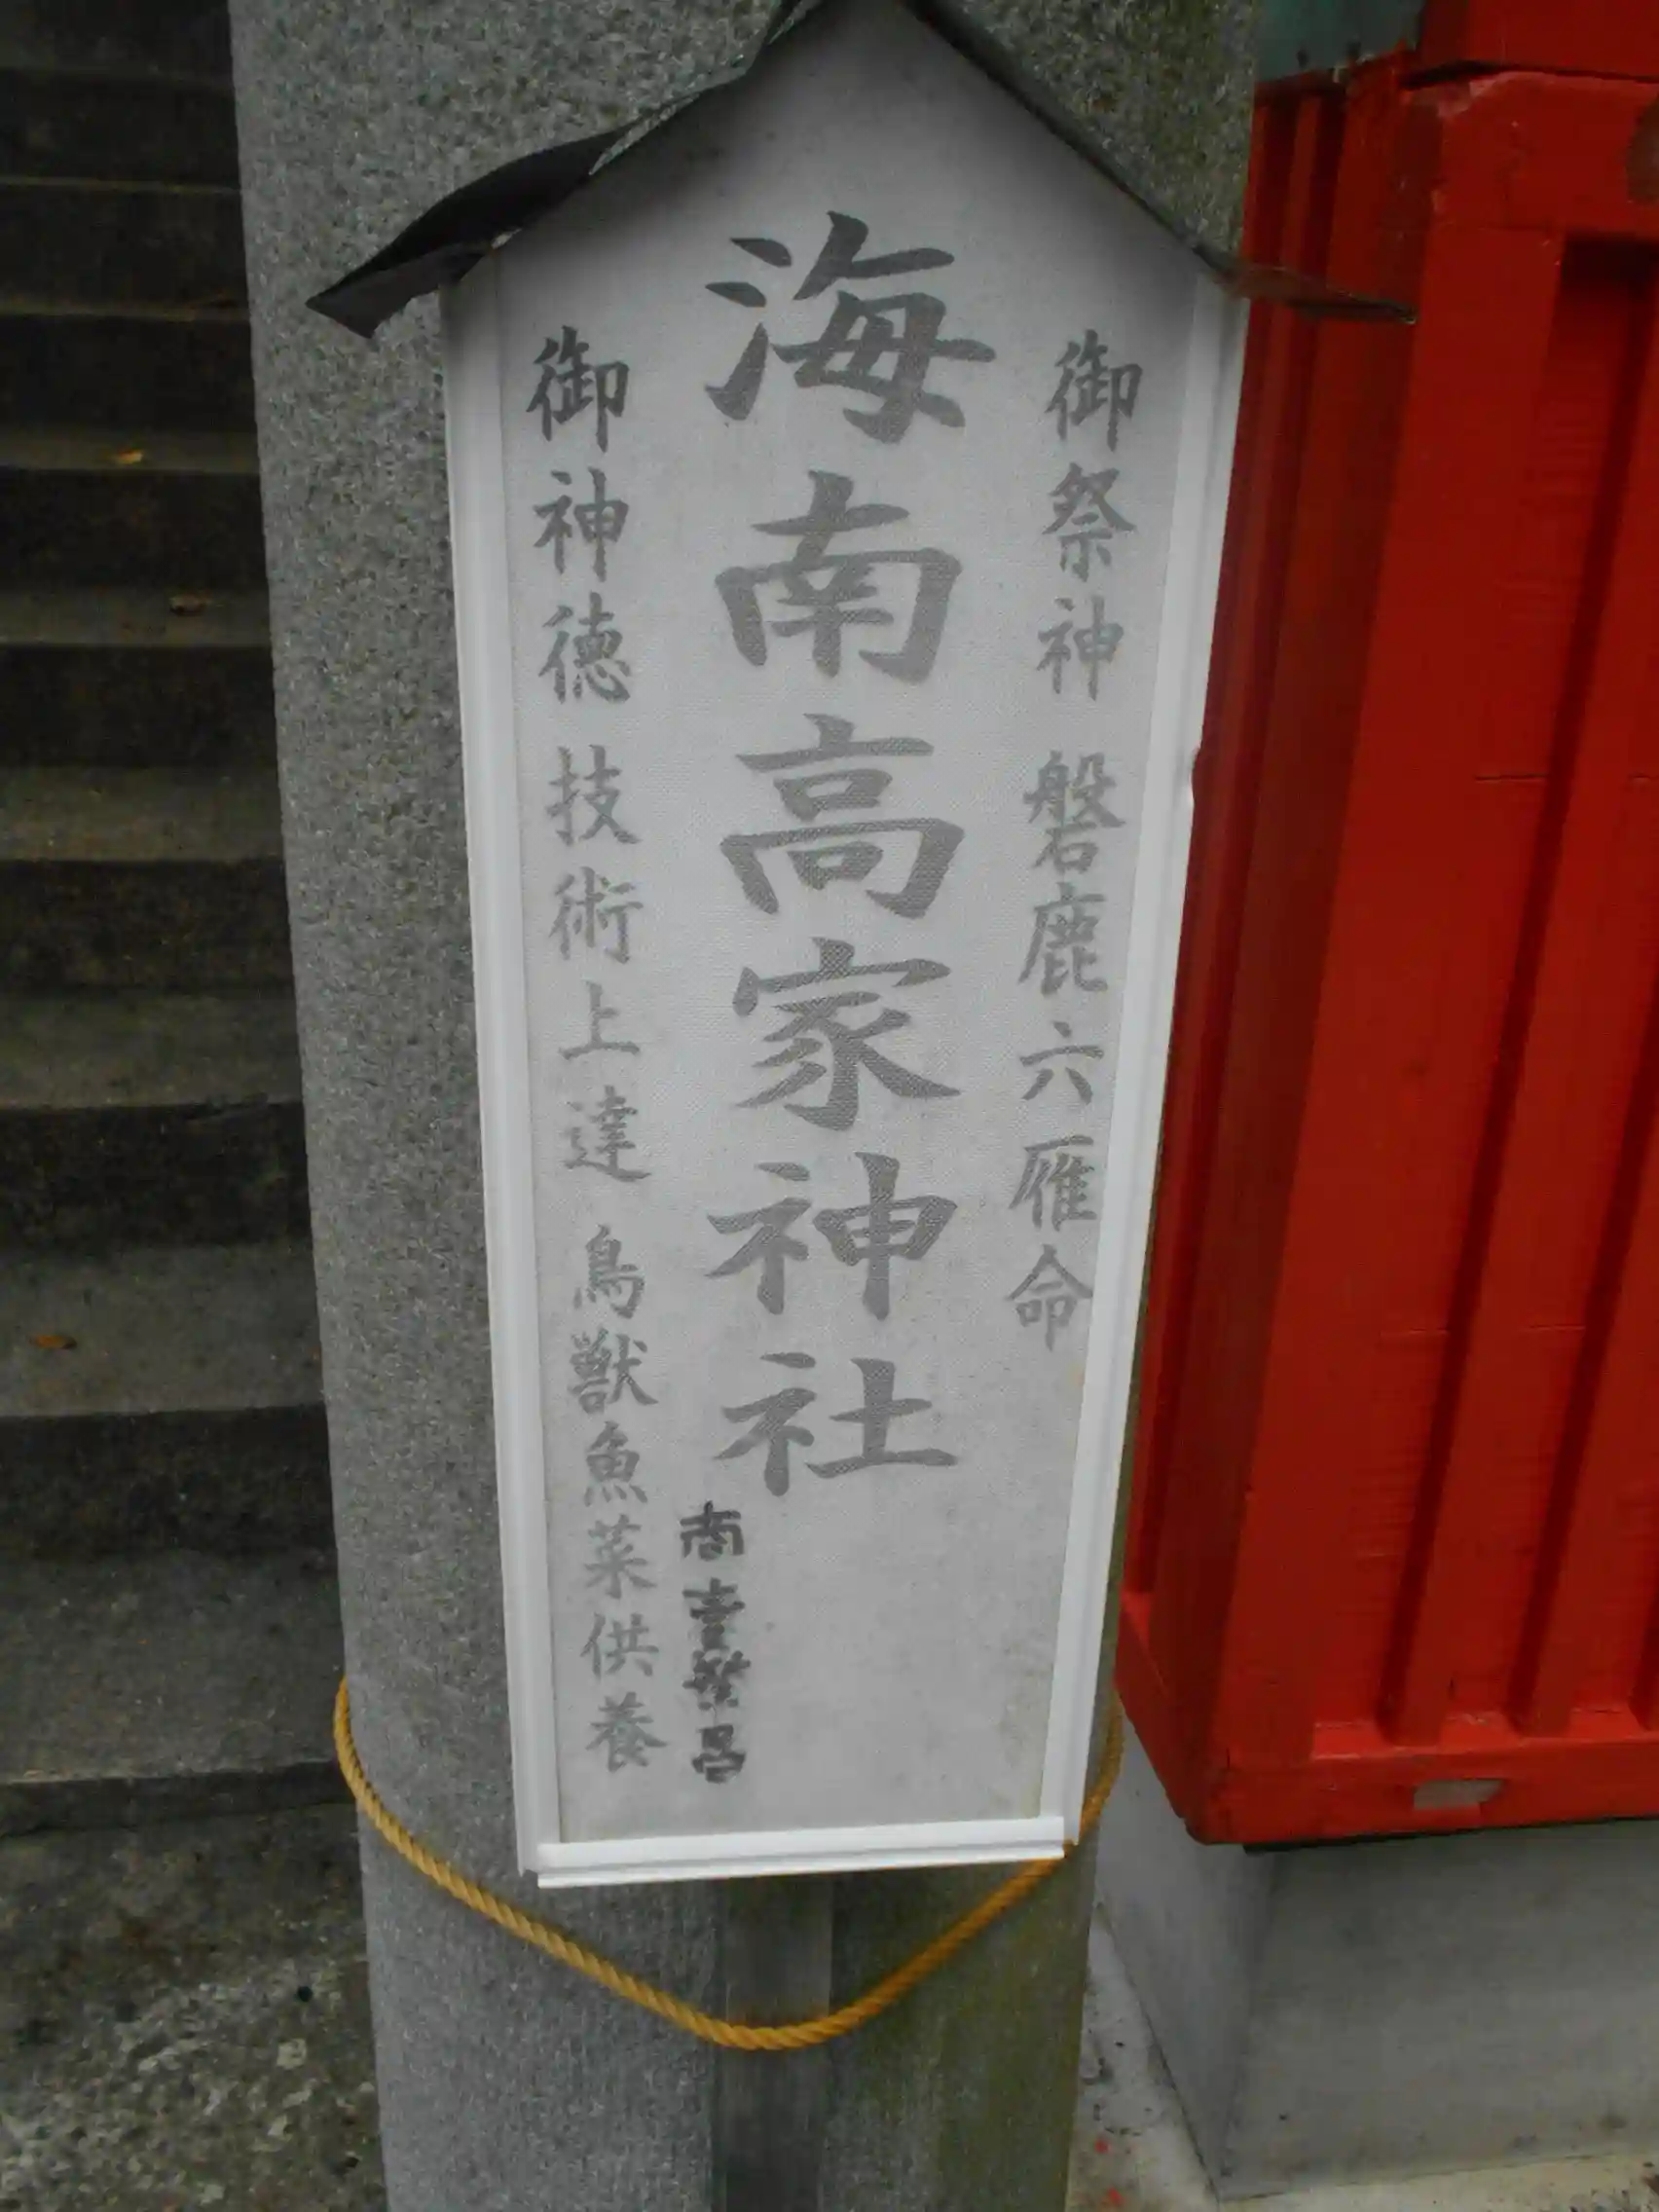 御祭神 磐鹿六雁命
海南高家神社
御神徳 技術上達 鳥獣魚菜供養
商売繁昌